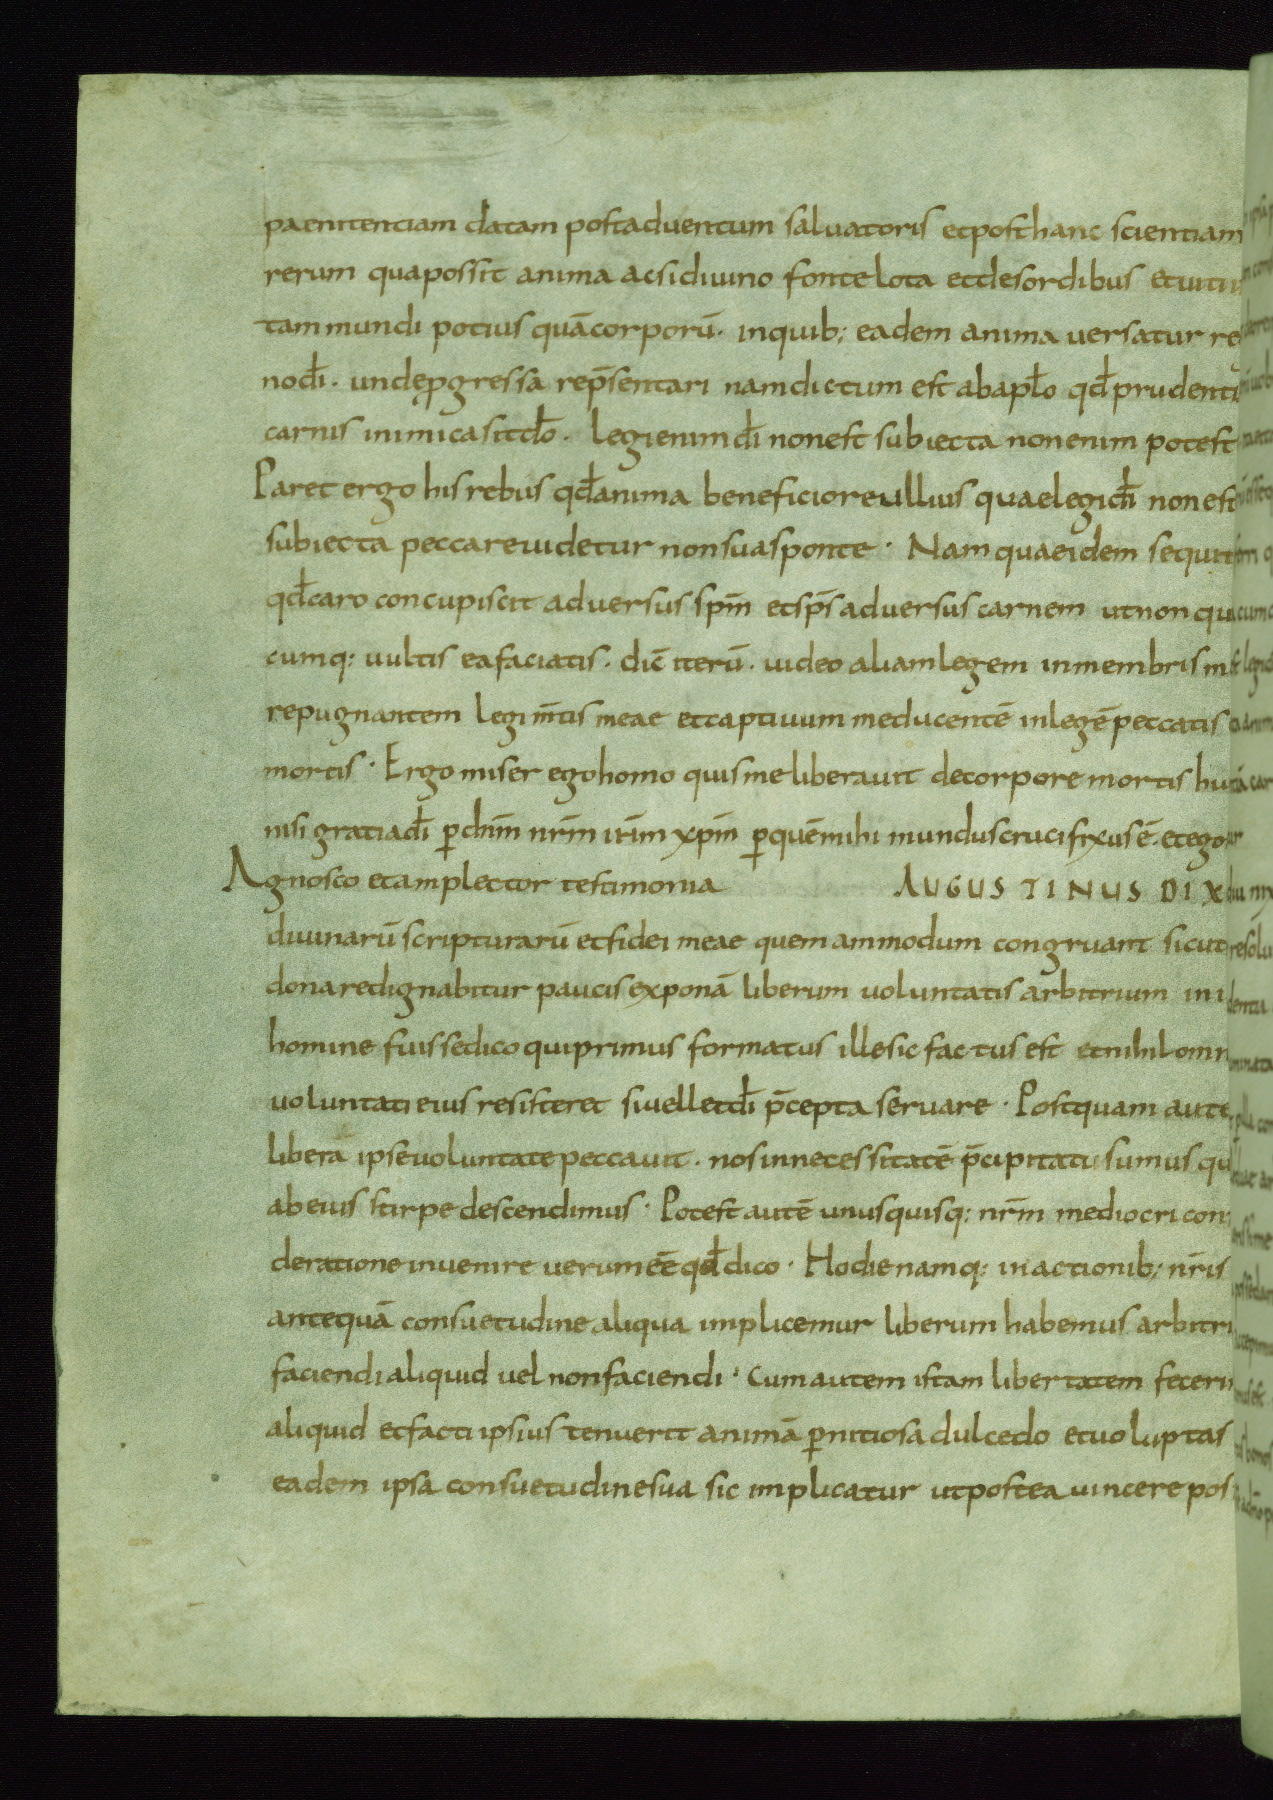 paenitentiam datam post adventum salvatoris et post hanc scientiam
rerum qua possit anima acsi divino fonte lota et de sordibus et vitiis
tam mundi potius quā corporū · in quib; eadem anima versatur
no dī · unde ꝓgressa rep̄sentari nam dictum est ab apło qđ prudentia
carnis inimica sit dō · Legi enim dī non est subiecta non enim potest
Paret ergo his rebus qđ anima beneficiore ullius quae legi dī non est
subiecta peccare videtur non sua sponte · Nam quae idem sequit
qđ caro concupiscit adversus sp̄m et sp̄s adversus carnem ut non quae
cumq; vultis ea faciatis · dic̄ iterū · video aliam legem in membris
repugnantem legi m̄tis meae et captivum me ducentē in legē peccatis
mortis · Ergo miser ego homo quis me liberavit de corpore mortis
nisi gratia dī ꝑ dn̄m nr̄m ih̄m xp̄m ꝑ quē mihi mundus crucifixus ē · et ego
Agnosco et amplector testimonia AUGUSTINUS DIX
divinarū scripturarū et fidei meae quem ammodum congruant sicut
dona re dignabitur paucis exponā liberum voluntatis arbitrium in
homine fuisse dico qui primus formatus ille sic factus est et nihil omn
voluntati eius resisteret si vellet dī p̄cepta servare · Postquam aute
libera ipse voluntate peccavit · nos in necessitatē p̄cipitati sumus qui
ab eius stirpe descendimus · Potest autē unusquisq; nr̄m mediocri con
deratione invenire verum eē qđ dico · Hodie namq; in actionib; nr̄is
antequā consuetudine aliqua implicemur liberum habemus arbitri
faciendi aliquid vel non faciendi · Cum autem istam libertatem feceri
aliquid et facti ipsius tenuerit animā ꝑnitiosa dulcedo et voluptas
eadem ipsa consuetudine sua sic implicatur ut postea vincere pos